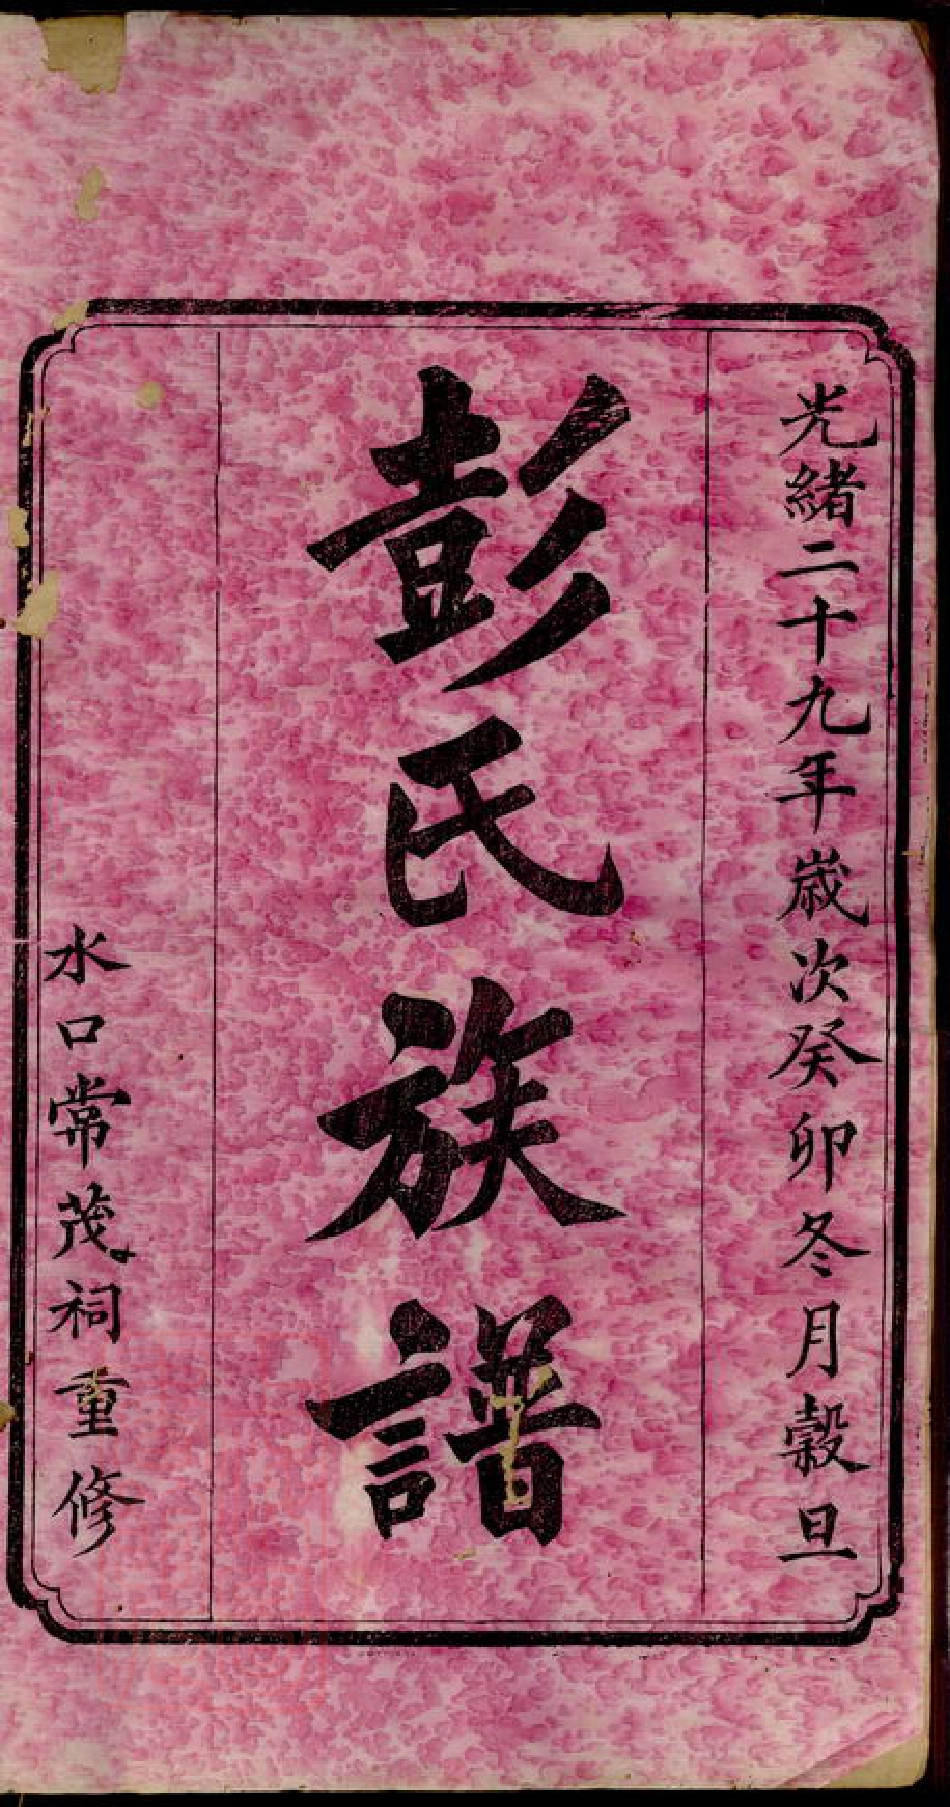 光緒二十九年歲次癸卯冬月穀旦
彭氏族譜
水口常茂祠重修